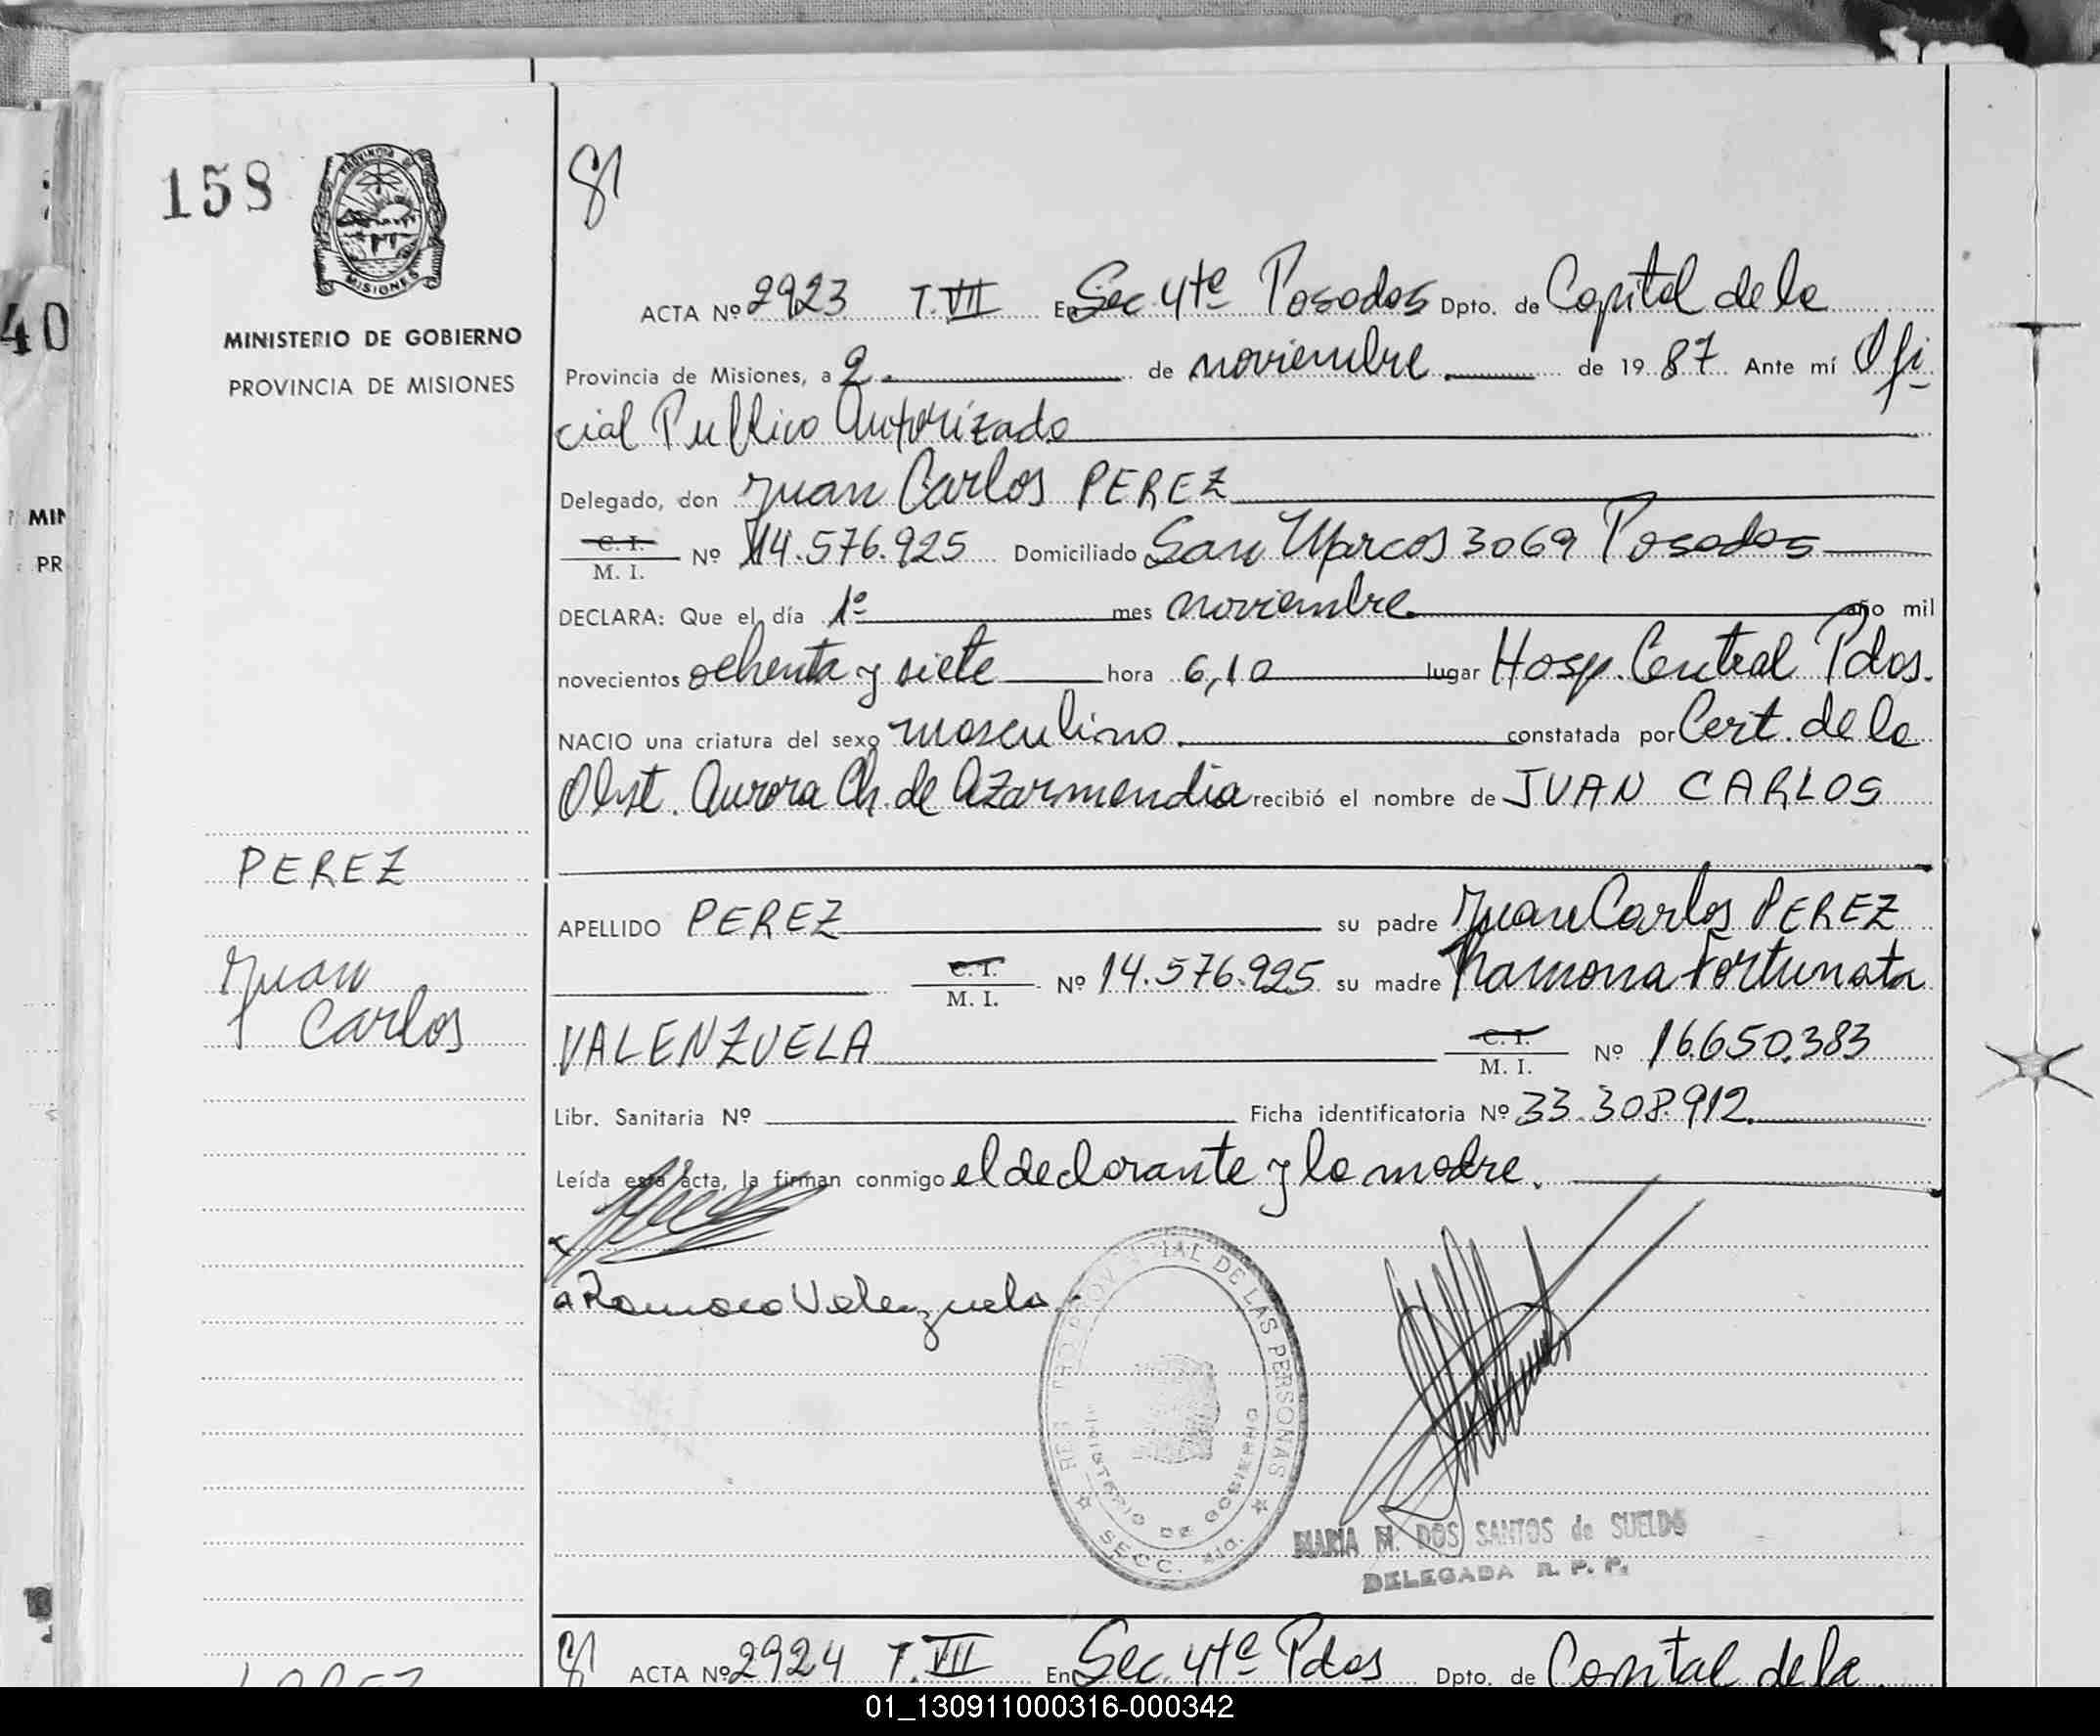 158
PROVINCIA DE
MISIONES
MINISTERIO DE GOBIERNO
PROVINCIA DE MISIONES
40
MIN
PR
ACTA Nº 2923 T. VII En Sec. 4ta Posadas Dpto. de Capital de la
Provincia de Misiones, a 2 de noviembre de 1987 Ante mí Ofi-
cial Publico Autorizado
Delegado, don Juan Carlos PEREZ
C. I. / M. I. Nº 14.576.925 Domiciliado San Marcos 3069 Posadas
DECLARA: Que el día 1º mes noviembre año mil
novecientos ochenta y siete hora 6,10 lugar Hosp. Central Pdas.
NACIO una criatura del sexo masculino. constatada por Cert. de la
Obst. Aurora Ch. de Azarmendia recibió el nombre de JUAN CARLOS
PEREZ
Juan
Carlos
APELLIDO PEREZ su padre Juan Carlos PEREZ
C. I. / M. I. Nº 14.576.925 su madre Ramona Fortunata
VALENZUELA C. I. / M. I. Nº 16.650.383
Libr. Sanitaria Nº Ficha identificatoria Nº 33.308.912
Leída esta acta, la firman conmigo el declarante y la madre.
Ramona Valenzuela
REGISTRO PROVINCIAL DE LAS PERSONAS
MINISTERIO DE GOBIERNO
SECC. 4ta.
MARIA M. DOS SANTOS de SUELDO
DELEGADA R. P. P.
LOPEZ
ACTA Nº 2924 T. VII En Sec. 4ta Pdas Dpto. de Capital de la
01_130911000316-000342